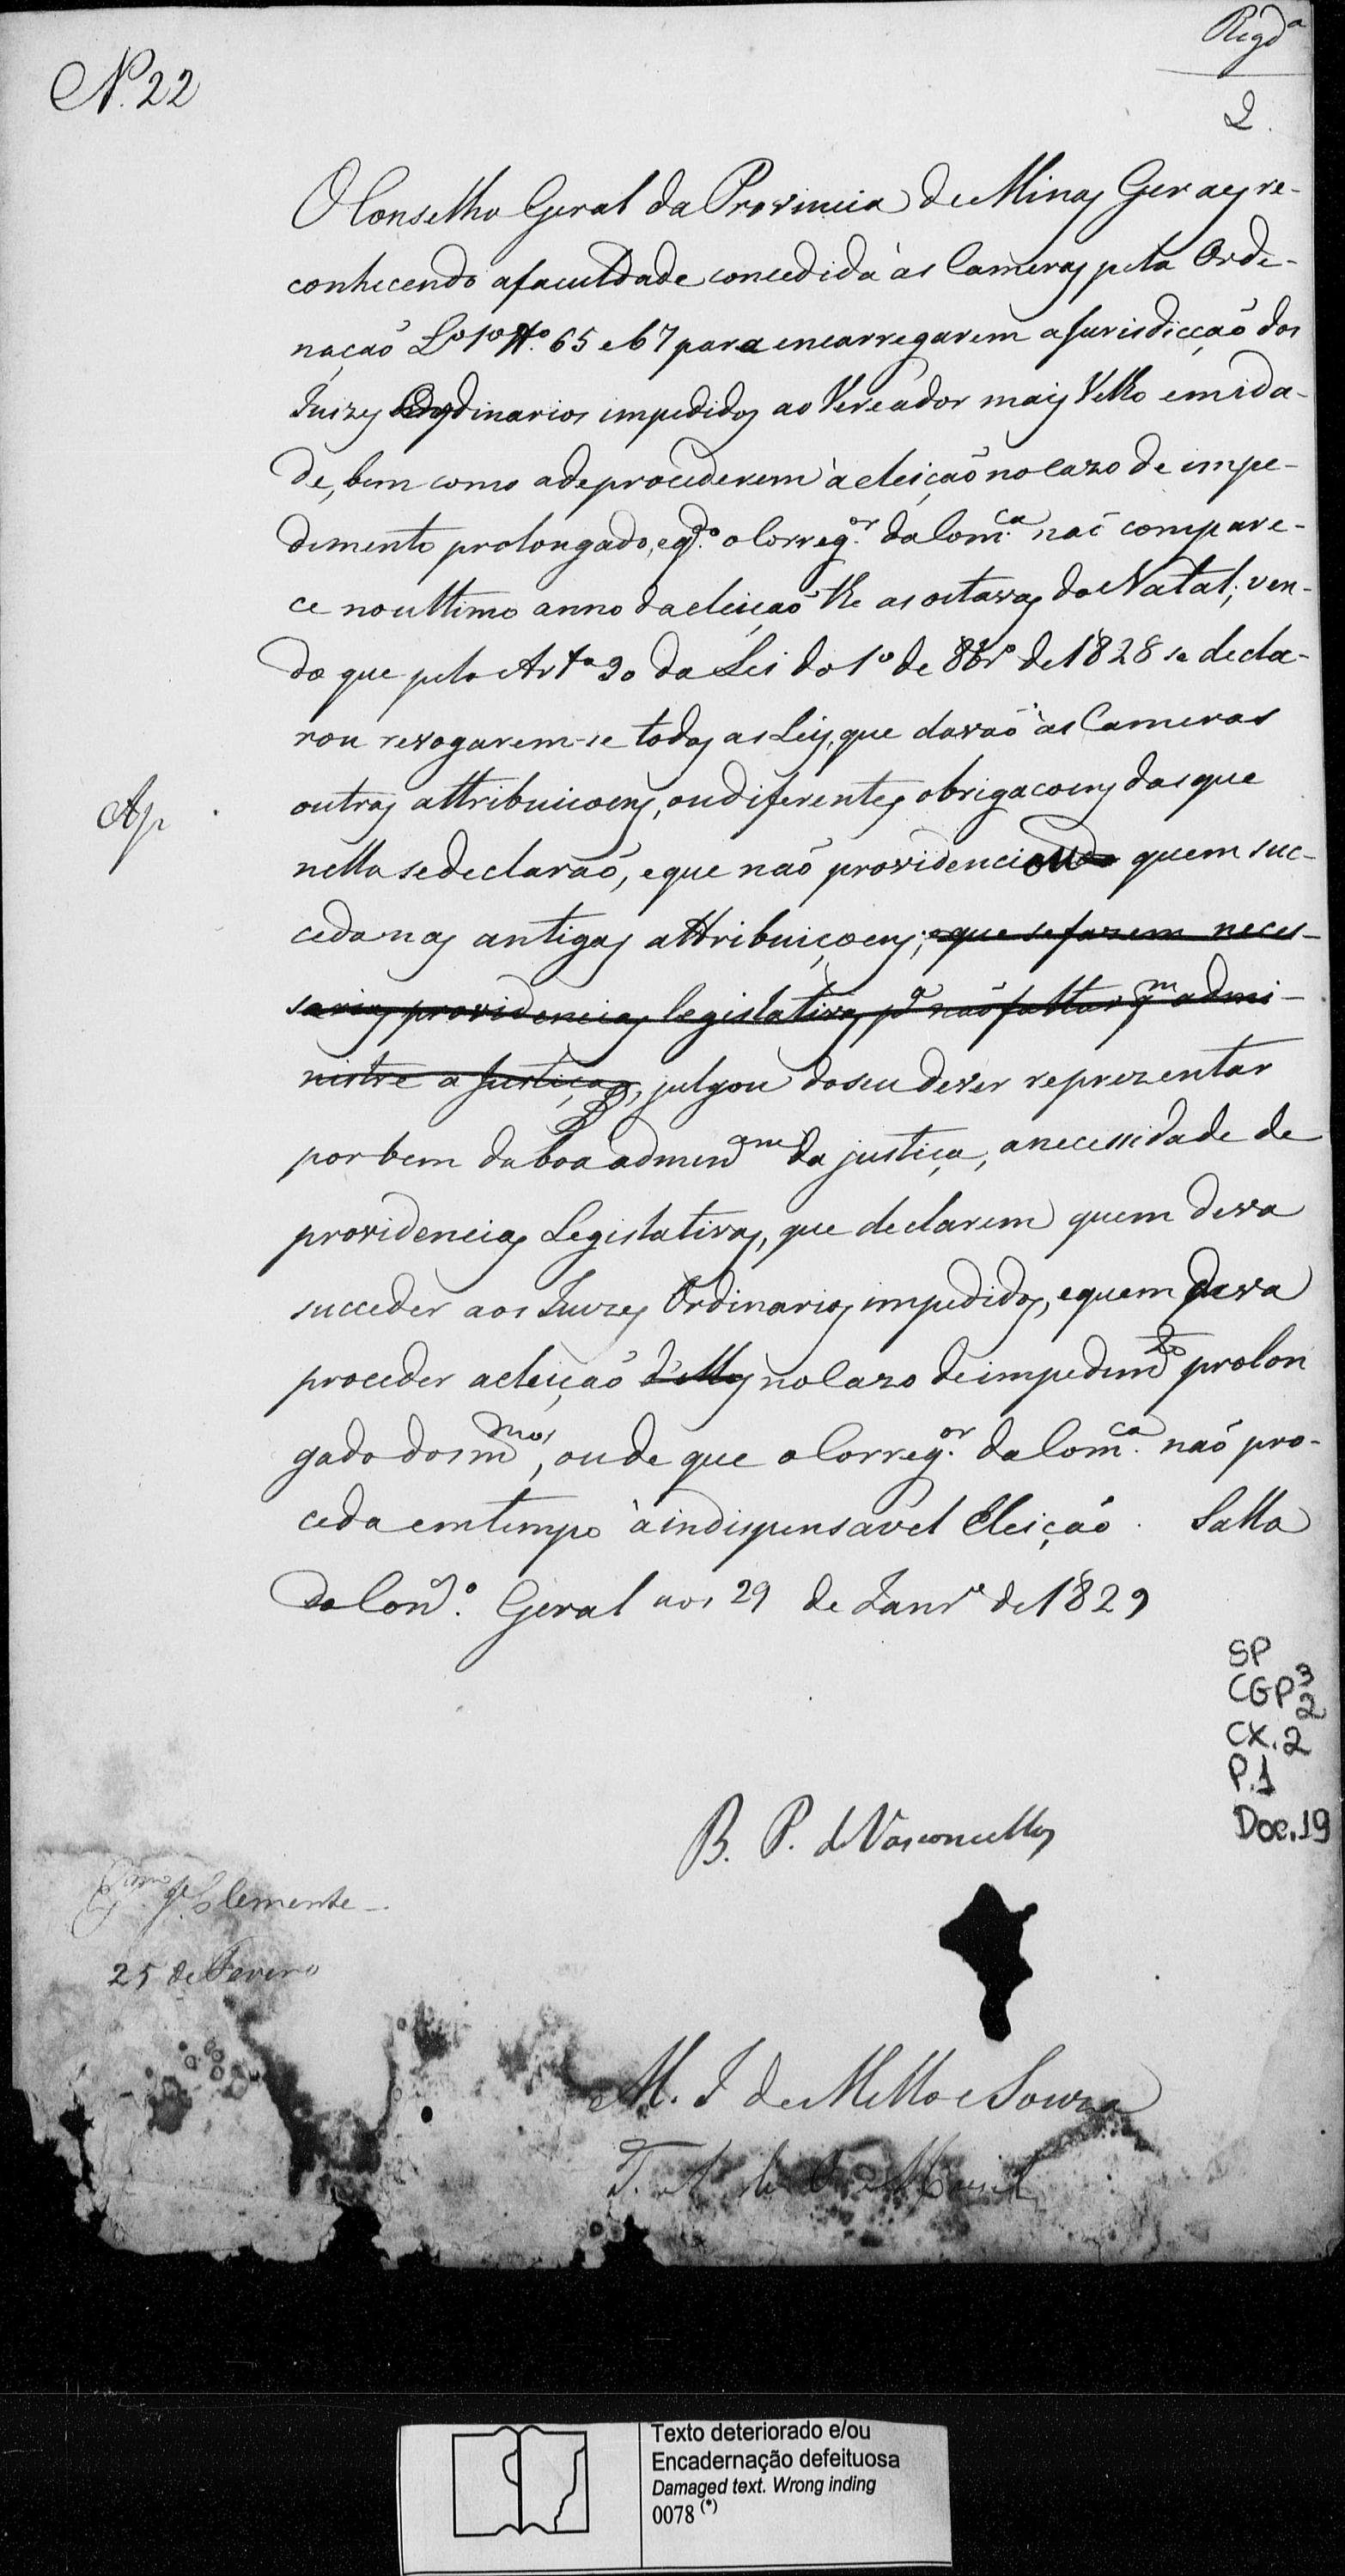 Regda
2
N. 22
O Conselho Geral da Provincia de Minas Geraes re-
conhecendo a faculdade concedida ás Cameras pela Orde-
naçaõ Lo 1o tto. 65 e 67 para encarregarem a Jurisdicçaõ dos
Juizes Ordinarios impedidos ao Vereador mais Velho em ida-
de, bem como a de procederem á eleiçaõ no cazo de impe-
dimento prolongado, e qdo. o Correg.or da Com.ca naõ compare-
ce no ultimo anno da eleiçaõ the as oitavas do Natal; ven-
do que pelo Arto 90 da Lei do 1o de 8bro de 1828 se decla-
rou revogarem-se todas as Leis, que davaõ ás Cameras
outras attribuicoens, ou diferentes obrigacoens das que
Ap
nella se declaraõ, e que naõ providenciou quem suc-
ceda nas antigas attribuiçoens; e que se fazem neces-
sarias providencias legislativas pa naõ faltar qm admi-
nistre a Justiça, julgou do seu dever reprezentar
por bem da boa admin.am da justiça, a necessidade de
providencias Legislativas, que declarem quem deva
succeder aos Juizes Ordinarios impedidos, e quem deva
proceder a eleiçaõ d'elles no cazo de impedimto prolon
gado dos mmos, ou de que o Correg.or da Com.ca naõ pro-
ceda em tempo á indispensavel Eleiçaõ. Salla
do Cono. Geral aos 29 de Janro de 1829
SP
CGP 3
2
CX. 2
P. 1
Doc. 19
B. P. de Vasconcellos
Je Clemente
25 de Fevero
M. I de Mello e Souza
Texto deteriorado e/ou
Encadernação defeituosa
Damaged text. Wrong inding
0078 (*)